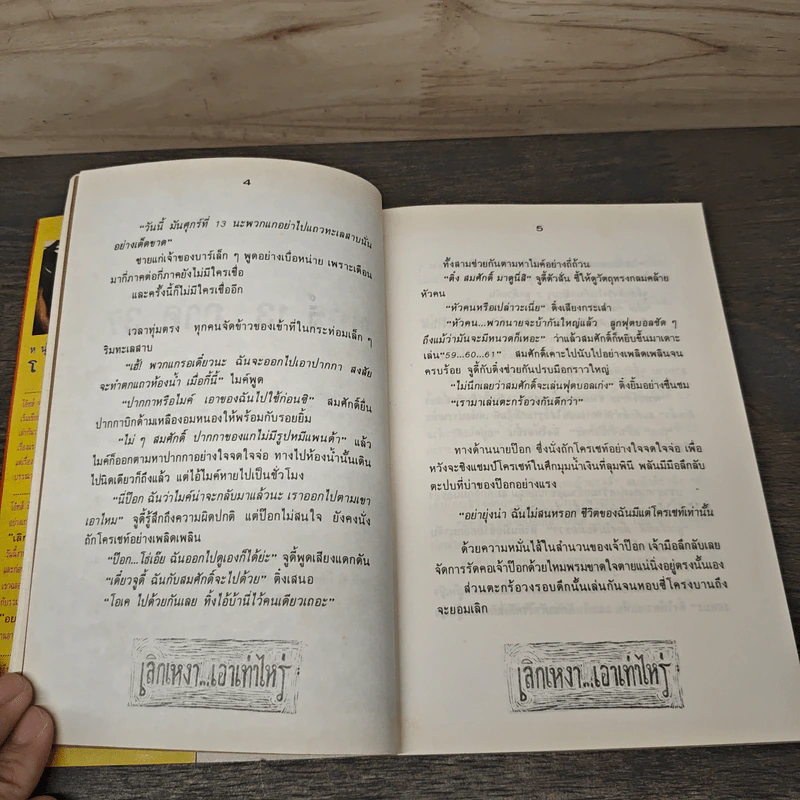 4
"วันนี้ มันศุกร์ที่ 13 นะพวกแกอย่าไปแถวทะเลสาบนั่น
อย่างเด็ดขาด"
ชายแก่เจ้าของบาร์เล็ก ๆ พูดอย่างเบื่อหน่าย เพราะเตือน
มากี่ภาคต่อกี่ภาคยังไม่มีใครเชื่อ
และครั้งนี้ก็ไม่มีใครเชื่ออีก
เวลาทุ่มตรง ทุกคนจัดข้าวของเข้าที่ในกระท่อมเล็ก ๆ
ริมทะเลสาบ
"เฮ้! พวกแกรอเดี๋ยวนะ ฉันจะออกไปเอาปากกา สงสัย
จะทำตกแถวห้องน้ำ เมื่อกี้นี้" ไมค์พูด
"ปากกาหรือไมค์ เอาของฉันไปใช้ก่อนซิ" สมศักดิ์ยื่น
ปากกาบิกด้ามเหลืองอมหนองให้พร้อมกับรอยยิ้ม
"ไม่ ๆ สมศักดิ์ ปากกาของแกไม่มีรูปหมีแพนด้า" แล้ว
ไมค์ก็ออกตามหาปากกาอย่างใจจดใจจ่อ ทางไปห้องน้ำนั้นเดิน
ไปนิดเดียวก็ถึงแล้ว แต่ไอ้ไมค์หายไปเป็นชั่วโมง
"นี่ป๊อก ฉันว่าไมค์น่าจะกลับมาแล้วนะ เราออกไปตามเขา
เอาไหม" จูดี้รู้สึกถึงความผิดปกติ แต่ป๊อกไม่สนใจ ยังคงนั่ง
ถักโครเชท์อย่างเพลิดเพลิน
"ป๊อก...โธ่เอ๊ย ฉันออกไปดูเองก็ได้ย่ะ" จูดี้พูดเสียงแดกดัน
"เดี๋ยวจูดี้ ฉันกับสมศักดิ์จะไปด้วย" ติ่งเสนอ
"โอเค ไปด้วยกันเลย ทิ้งไอ้บ้านี่ไว้คนเดียวเถอะ"
เลิกเหงา...เอาเท่าไหร่
5
ทั้งสามช่วยกันตามหาไมค์อย่างถี่ถ้วน
"ติ่ง สมศักดิ์ มาดูนี่สิ" จูดี้ตัวสั่น ชี้ให้ดูวัตถุทรงกลมคล้าย
หัวคน
"หัวคนหรือเปล่าวะเนี่ย" ติ่งเสียงกระเส่า
"หัวคน...พวกนายจะบ้ากันใหญ่แล้ว ลูกฟุตบอลชัด ๆ
ถึงแม้ว่ามันจะมีหนวดก็เหอะ" ว่าแล้วสมศักดิ์ก็หยิบขึ้นมาเดาะ
เล่น"59...60...61" สมศักดิ์เดาะไปนับไปอย่างเพลิดเพลินจน
ครบร้อย จูดี้กับติ่งช่วยกันปรบมือกราวใหญ่
"ไม่นึกเลยว่าสมศักดิ์จะเล่นฟุตบอลเก่ง" ติ่งยิ้มอย่างชื่นชม
"เรามาเล่นตะกร้อวงกันดีกว่า"
ทางด้านนายป๊อก ซึ่งนั่งถักโครเชท์อย่างใจจดใจจ่อ เพื่อ
หวังจะชิงแชมป์โครเชท์ในศึกมุมน้ำเงินที่ลุมพินี พลันมีมือลึกลับ
ตะปบที่บ่าของป๊อกอย่างแรง
"อย่ายุ่งน่า ฉันไม่สนหรอก ชีวิตของฉันมีแต่โครเชท์เท่านั้น
ด้วยความหมั่นไส้ในสำนวนของเจ้าป๊อก เจ้ามือลึกลับเลย
จัดการรัดคอเจ้าป๊อกด้วยไหมพรมขาดใจตายแน่นิ่งอยู่ตรงนั้นเอง
ส่วนตะกร้อวงรอบดึกนั้นเล่นกันจนหอบซี่โครงบานถึง
จะยอมเลิก
เลิกเหงา...เอาเท่าไหร่